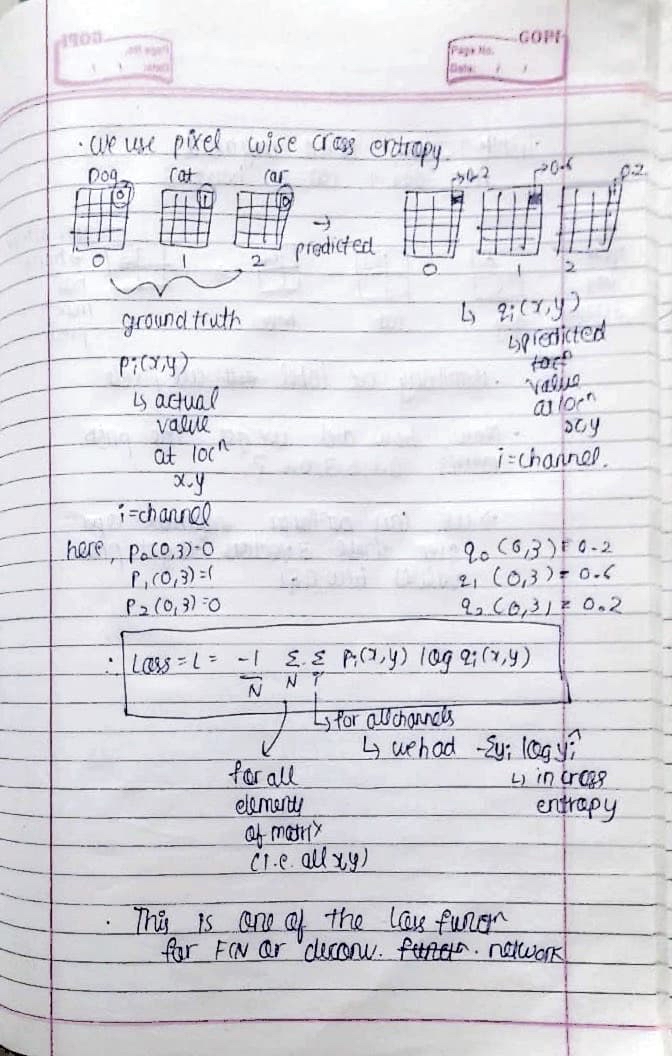 GOPI
Page No.
Date: / /
· we use pixel wise cross entropy.
Dog cat car
0 1 0 → predicted →0.2 →0.6 0.2
0 1 2 0 1 2
ground truth
↳ qi(x,y)
↳ predicted
value
at locn
x,y
i=channel.
Pi(x,y)
↳ actual
value
at locn
x,y
i=channel
here, P0(0,3)=0
P1(0,3)=1
P2(0,3)=0
q0(0,3)=0.2
q1(0,3)=0.6
q2(0,3)=0.2
∴ Loss = L = -1/N Σ_N Σ_i Pi(x,y) log qi(x,y)
↳ for all channels
↳ we had -Σyi log ŷi
↳ in cross
entropy
for all
elements
of matrix
(i.e. all x,y)
· This is one of the loss funcn
for FCN or deconv. network